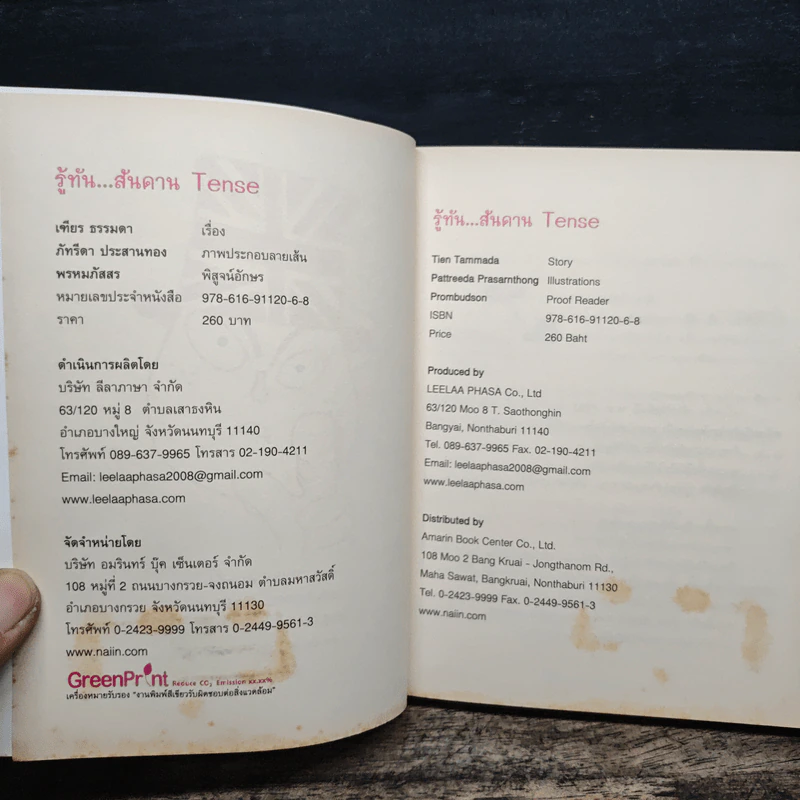 รู้ทัน...สันดาน Tense
เฑียร ธรรมดา เรื่อง
ภัทรีดา ประสานทอง ภาพประกอบลายเส้น
พรหมภัสสร พิสูจน์อักษร
หมายเลขประจำหนังสือ 978-616-91120-6-8
ราคา 260 บาท
ดำเนินการผลิตโดย
บริษัท ลีลาภาษา จำกัด
63/120 หมู่ 8 ตำบลเสาธงหิน
อำเภอบางใหญ่ จังหวัดนนทบุรี 11140
โทรศัพท์ 089-637-9965 โทรสาร 02-190-4211
Email: leelaaphasa2008@gmail.com
www.leelaaphasa.com
จัดจำหน่ายโดย
บริษัท อมรินทร์ บุ๊ค เซ็นเตอร์ จำกัด
108 หมู่ที่ 2 ถนนบางกรวย-จงถนอม ตำบลมหาสวัสดิ์
อำเภอบางกรวย จังหวัดนนทบุรี 11130
โทรศัพท์ 0-2423-9999 โทรสาร 0-2449-9561-3
www.naiin.com
GreenPrint Reduce CO2 Emission xx.xx%
เครื่องหมายรับรอง "งานพิมพ์สีเขียวรับผิดชอบต่อสิ่งแวดล้อม"
รู้ทัน...สันดาน Tense
Tien Tammada Story
Pattreeda Prasarnthong Illustrations
Prombudson Proof Reader
ISBN 978-616-91120-6-8
Price 260 Baht
Produced by
LEELAA PHASA Co., Ltd
63/120 Moo 8 T. Saothonghin
Bangyai, Nonthaburi 11140
Tel. 089-637-9965 Fax. 02-190-4211
Email: leelaaphasa2008@gmail.com
www.leelaaphasa.com
Distributed by
Amarin Book Center Co., Ltd.
108 Moo 2 Bang Kruai - Jongthanom Rd.,
Maha Sawat, Bangkruai, Nonthaburi 11130
Tel. 0-2423-9999 Fax. 0-2449-9561-3
www.naiin.com